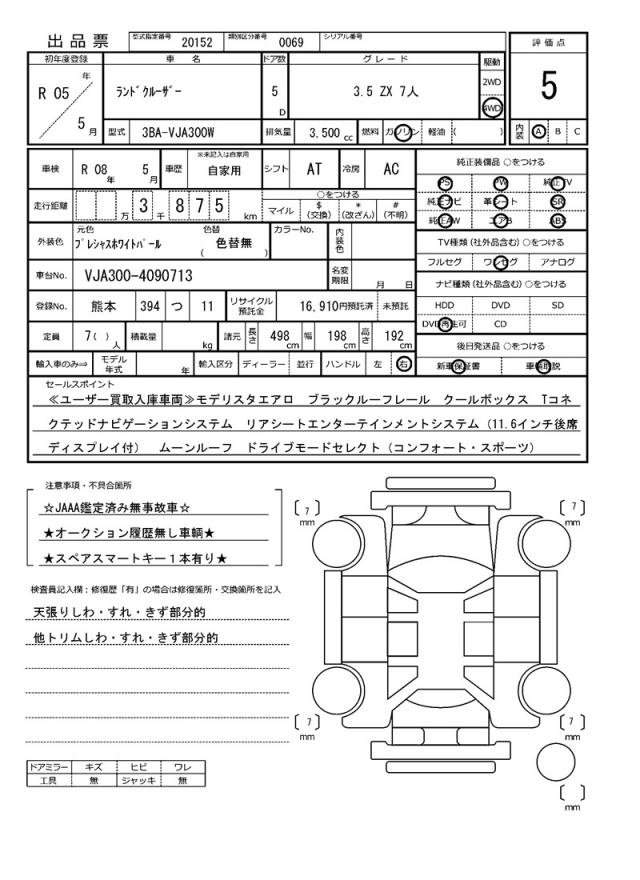 出品票 型式指定番号 20152 類別区分番号 0069 シリアル番号
初年度登録 車名 ドア数 グレード 駆動 評価点
R 05 年 5 月 ﾗﾝﾄﾞｸﾙｰｻﾞｰ 5 D 3.5 ZX 7人 2WD 4WD 5
型式 3BA-VJA300W 排気量 3.500 cc 燃料 ガソリン 軽油 ( ) 内装 A B C
車検 R 08 年 5 月 車歴 ※未記入は自家用 自家用 シフト AT 冷房 AC
走行距離 万 3 千 8 7 5 km ○をつける マイル $ (交換) * (改ざん) # (不明)
外装色 元色 ﾌﾟﾚｼｬｽﾎﾜｲﾄﾊﾟｰﾙ 色替 ( 色替無 ) カラーNo. 内装色
車台No. VJA300-4090713 名変期限 月 日
登録No. 熊本 394 つ 11 リサイクル預託金 16,910円預託済 未預託
定員 7( ) 人 積載量 kg 諸元 長さ 498 cm 幅 198 cm 高さ 192 cm
輸入車のみ⇒ モデル年式 年 輸入区分 ディーラー 並行 ハンドル 左 右
純正装備品 ○をつける
PS PW 純正TV
純正ナビ 革シート SR
純正AW エアB ABS
TV種類 (社外品含む) ○をつける
フルセグ ワンセグ アナログ
ナビ種類 (社外品含む) ○をつける
HDD DVD SD
DVD再生可 CD
後日発送品 ○をつける
新車保証書 車輌取説
セールスポイント
≪ユーザー買取入庫車両≫モデリスタエアロ ブラックルーフレール クールボックス Tコネ
クテッドナビゲーションシステム リアシートエンターテインメントシステム（11.6インチ後席
ディスプレイ付） ムーンルーフ ドライブモードセレクト（コンフォート・スポーツ）
注意事項・不具合箇所
☆JAAA鑑定済み無事故車☆
★オークション履歴無し車輌★
★スペアスマートキー１本有り★
検査員記入欄：修復歴「有」の場合は修復箇所・交換箇所を記入
天張りしわ・すれ・きず部分的
他トリムしわ・すれ・きず部分的
ドアミラー キズ ヒビ ワレ
工具 無 ジャッキ 無
〔 7 〕 mm
〔 7 〕 mm
〔 7 〕 mm
〔 7 〕 mm
〔 〕 mm